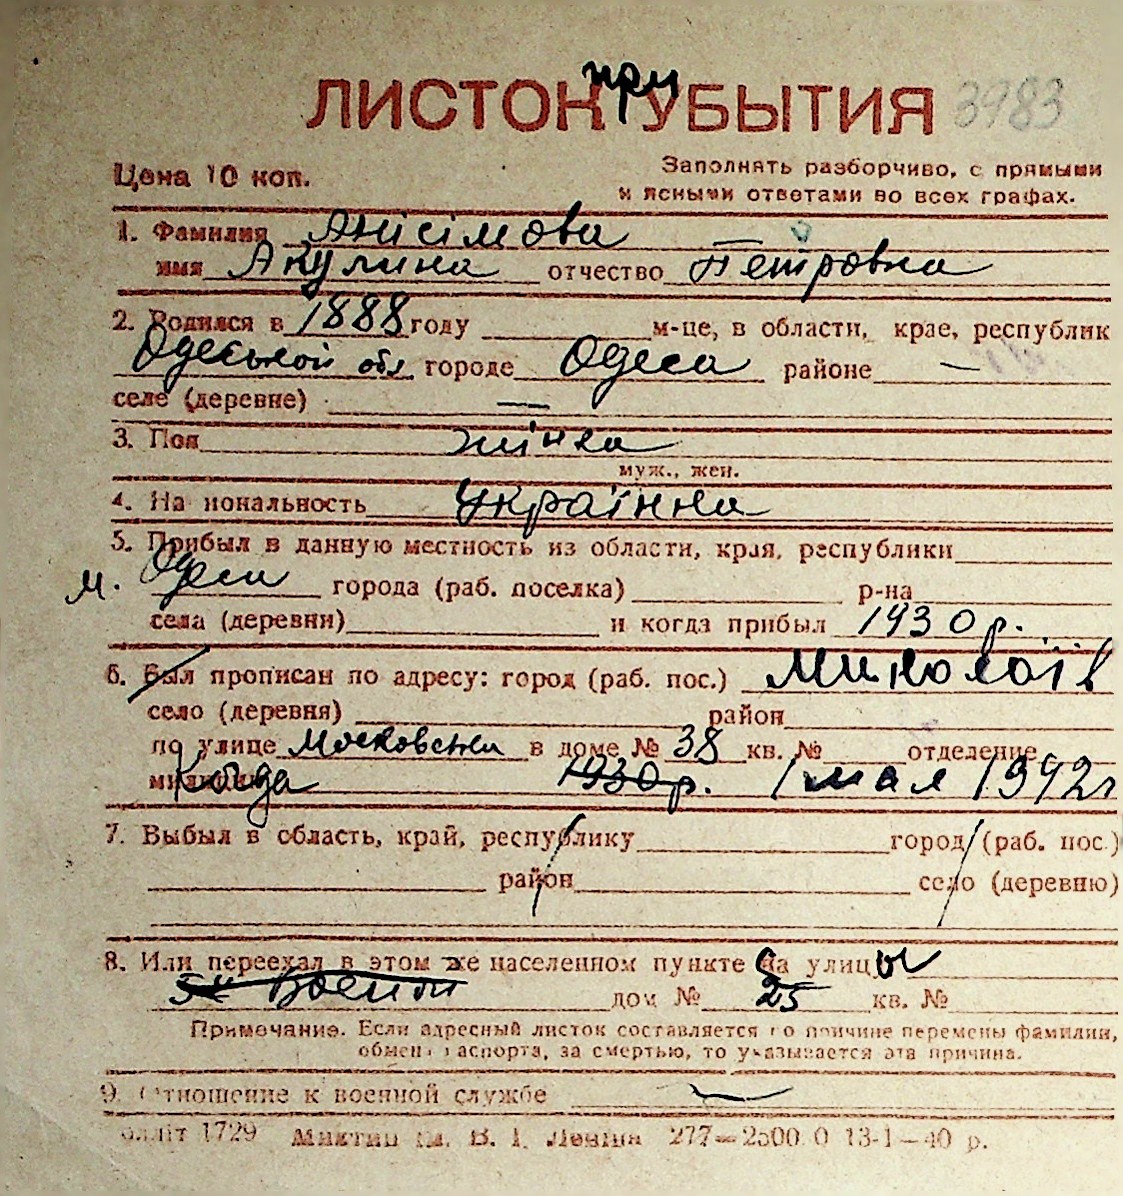 ЛИСТОК при УБЫТИЯ 3983
Цена 10 коп. Заполнять разборчиво, с прямыми
и ясными ответами во всех графах.
1. Фамилия Анісімова
имя Акулина отчество Петровна
2. Родился в 1888 году м-це, в области, крае, республик
Одеської обл городе Одеса районе —
селе (деревне) —
3. Пол жінка
муж., жен.
4. Национальность Українка
5. Прибыл в данную местность из области, края, республики
м. Одеси города (раб. поселка) р-на
села (деревни) и когда прибыл 1930 р.
6. Был прописан по адресу: город (раб. пос.) Миколаїв
село (деревня) район
по улице Московська в доме № 38 кв. № отделение
милиции Когда 1930 р. 1 мая 1942 г
7. Выбыл в область, край, республику город (раб. пос.)
район село (деревню)
8. Или переехал в этом же населенном пункте с на улицы
5 Военой дом № 25 кв. №
Примечание. Если адресный листок составляется по причине перемены фамилии,
обмена паспорта, за смертью, то указывается эта причина.
9. Отношение к военной службе —
1729 В. І. Леніна 277—2500 0 13-1—40 р.